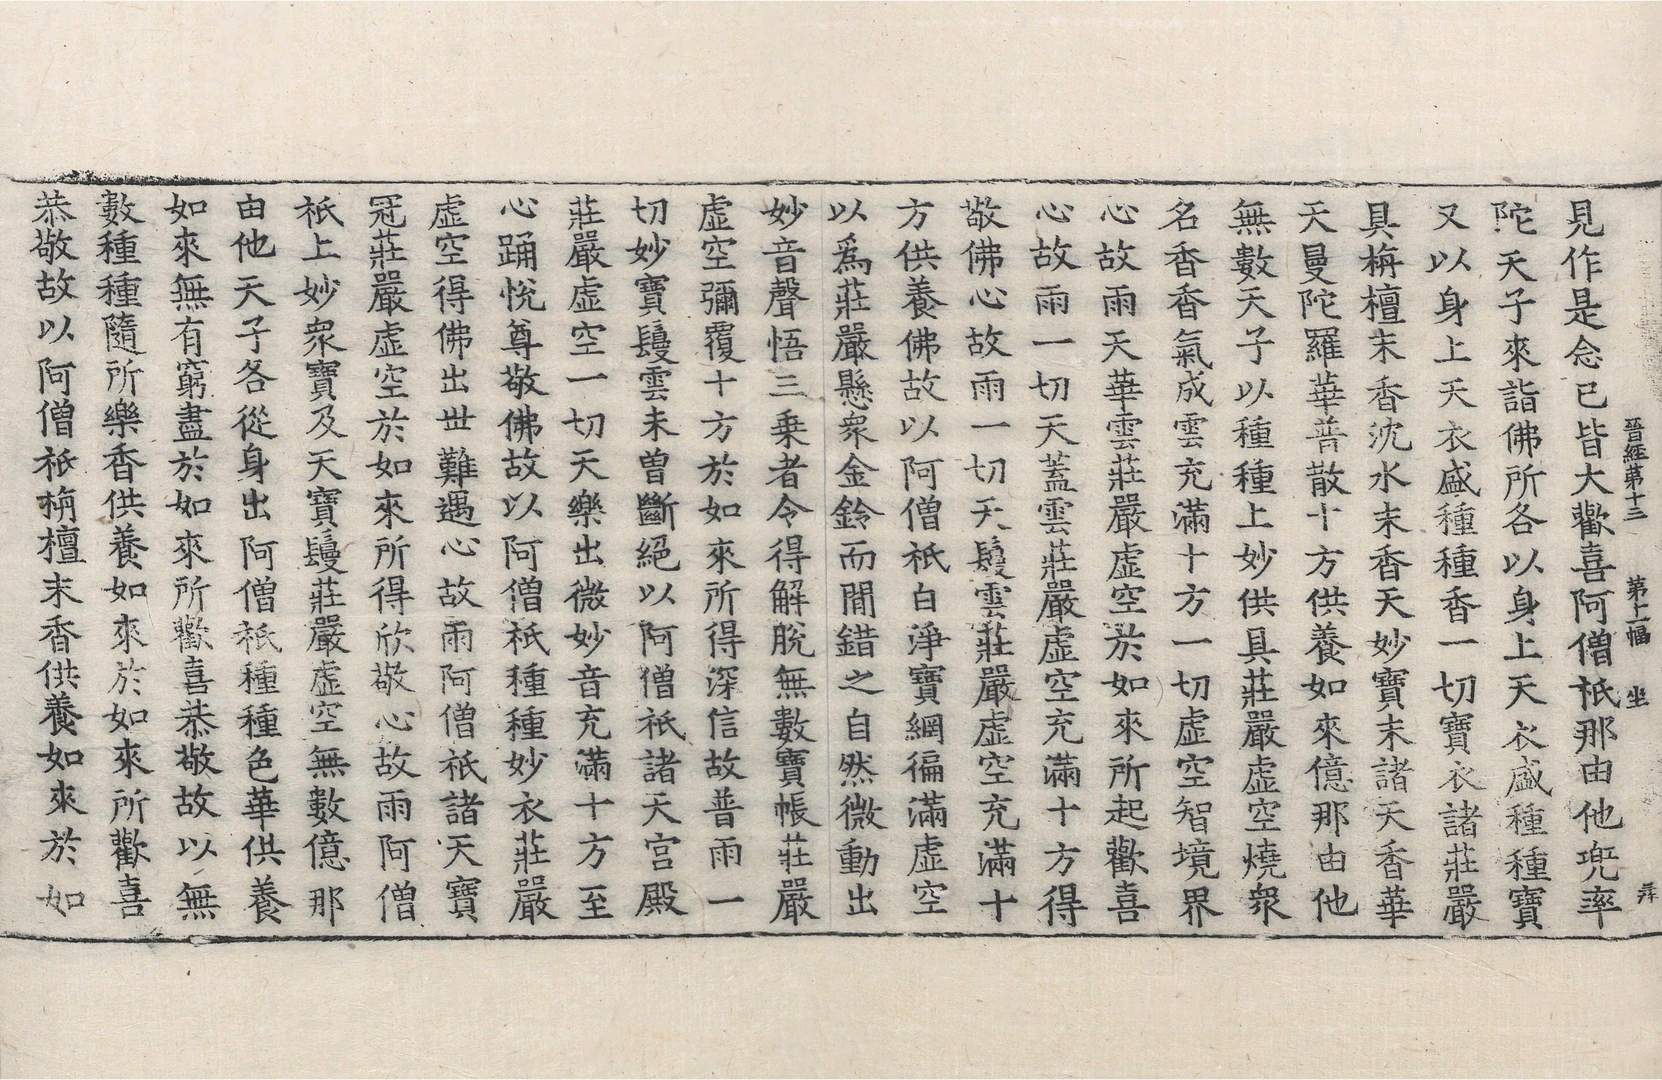 晉經第十三 第上幅 坐
見作是念已皆大歡喜阿僧祇那由他兜率
陀天子來詣佛所各以身上天衣盛種種寶
又以身上天衣盛種種香一切寶衣諸莊嚴
具栴檀末香沈水末香天妙寶末諸天香華
天曼陀羅華普散十方供養如來億那由他
無數天子以種種上妙供具莊嚴虛空燒衆
名香香氣成雲充滿十方一切虛空智境界
心故雨天華雲莊嚴虛空於如來所起歡喜
心故雨一切天蓋雲莊嚴虛空充滿十方得
敬佛心故雨一切天鬘雲莊嚴虛空充滿十
方供養佛故以阿僧祇白淨寶網徧滿虛空
以爲莊嚴懸衆金鈴而間錯之自然微動出
妙音聲悟三乗者令得解脫無數寶帳莊嚴
虛空彌覆十方於如來所得深信故普雨一
切妙寶鬘雲未曾斷絕以阿僧祇諸天宮殿
莊嚴虛空一切天樂出微妙音充滿十方至
心踊悅尊敬佛故以阿僧祇種種妙衣莊嚴
虛空得佛出世難遇心故雨阿僧祇諸天寶
冠莊嚴虛空於如來所得欣敬心故雨阿僧
祇上妙衆寶及天寶鬘莊嚴虛空無數億那
由他天子各從身出阿僧祇種種色華供養
如來無有窮盡於如來所歡喜恭敬故以無
數種種隨所樂香供養如來於如來所歡喜
恭敬故以阿僧祇栴檀末香供養如來於如